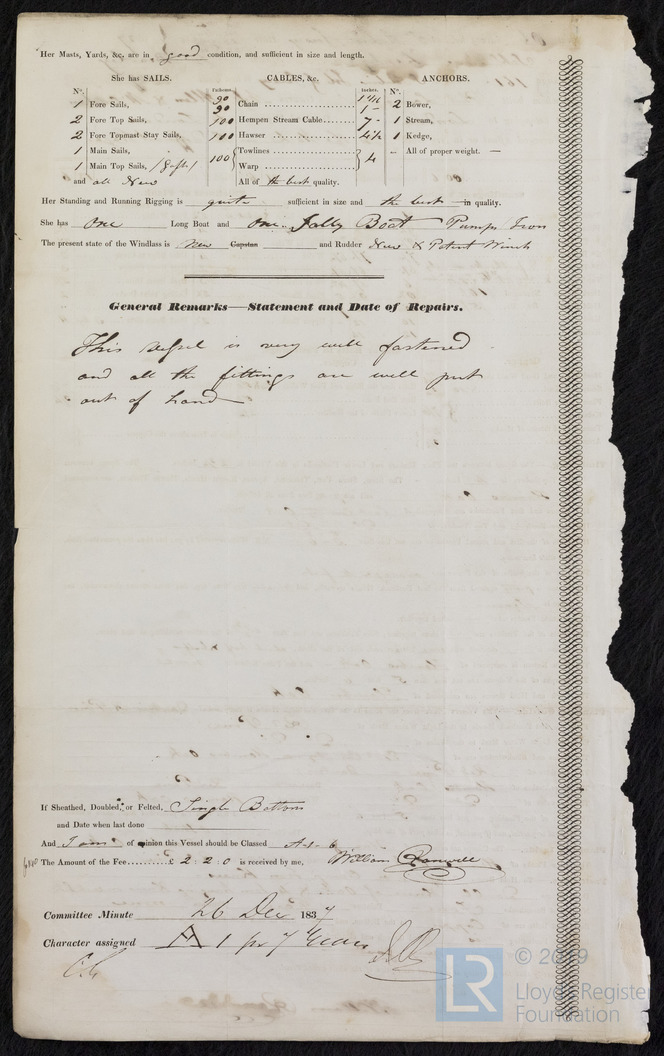 Her Masts, Yards, &c. are in good condition, and sufficient in size and length.
She has SAILS. CABLES, &c. ANCHORS.
N°. Fathoms. Inches. N°.
1 Fore Sails, 90 Chain 2 Bower,
90
2 Fore Top Sails, 100 Hempen Stream Cable 7 - 1 Stream,
2 Fore Topmast Stay Sails, 100 Hawser 4½ 1 Kedge,
1 Main Sails, 100 Towlines 4 - All of proper weight. —
1 Main Top Sails, (Gaft) Warp
and all New All of the best quality.
Her Standing and Running Rigging is quite sufficient in size and the best in quality.
She has One Long Boat and one Jolly Boat Pumps Iron
The present state of the Windlass is New Capstan and Rudder New & Patent Winch
General Remarks—Statement and Date of Repairs.
This vessel is very well fastened
and all the fittings are well put
out of hand
If Sheathed, Doubled, or Felted, Single Bottom
and Date when last done
And I am of opinion this Vessel should be Classed
The Amount of the Fee £ 2 : 2 : 0 is received by me, William
Committee Minute 26 Dec 1837
Character assigned A 1 for 7 Years
LR © 2019
Lloyd's Register
Foundation